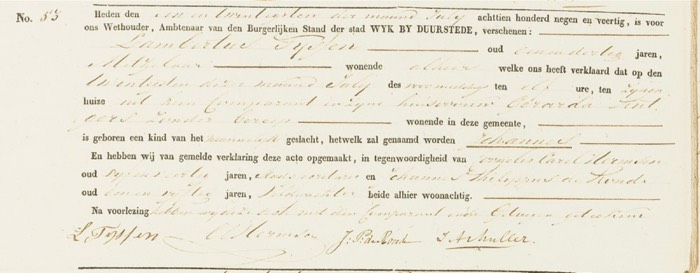 No. 53 Heden den een en twintigsten der maand July achttien honderd negen en veertig, is voor
ons Wethouder, Ambtenaar van den Burgerlijken Stand der stad WYK BY DUURSTEDE, verschenen:
Lambertus Tyssen oud eenendertig jaren,
Metselaar wonende alhier welke ons heeft verklaard dat op den
twintigsten dezer maand July des voormiddags ten elf ure, ten zynen
huize uit hem Comparant en zyne huisvrouw Gerarda
zonder beroep wonende in deze gemeente,
is geboren een kind van het mannelijk geslacht, hetwelk zal genaamd worden Johannes
En hebben wij van gemelde verklaring deze acte opgemaakt, in tegenwoordigheid van Carel Hermsen
oud veertig jaren, en Johannes Philippus de Kond
oud vyftig jaren, beide alhier woonachtig.
Na voorlezing hebben wy deze acte met den Comparant en de Getuigen geteekend
L. Tyssen C Hermsen J. P. de Kond J. A. Muller.